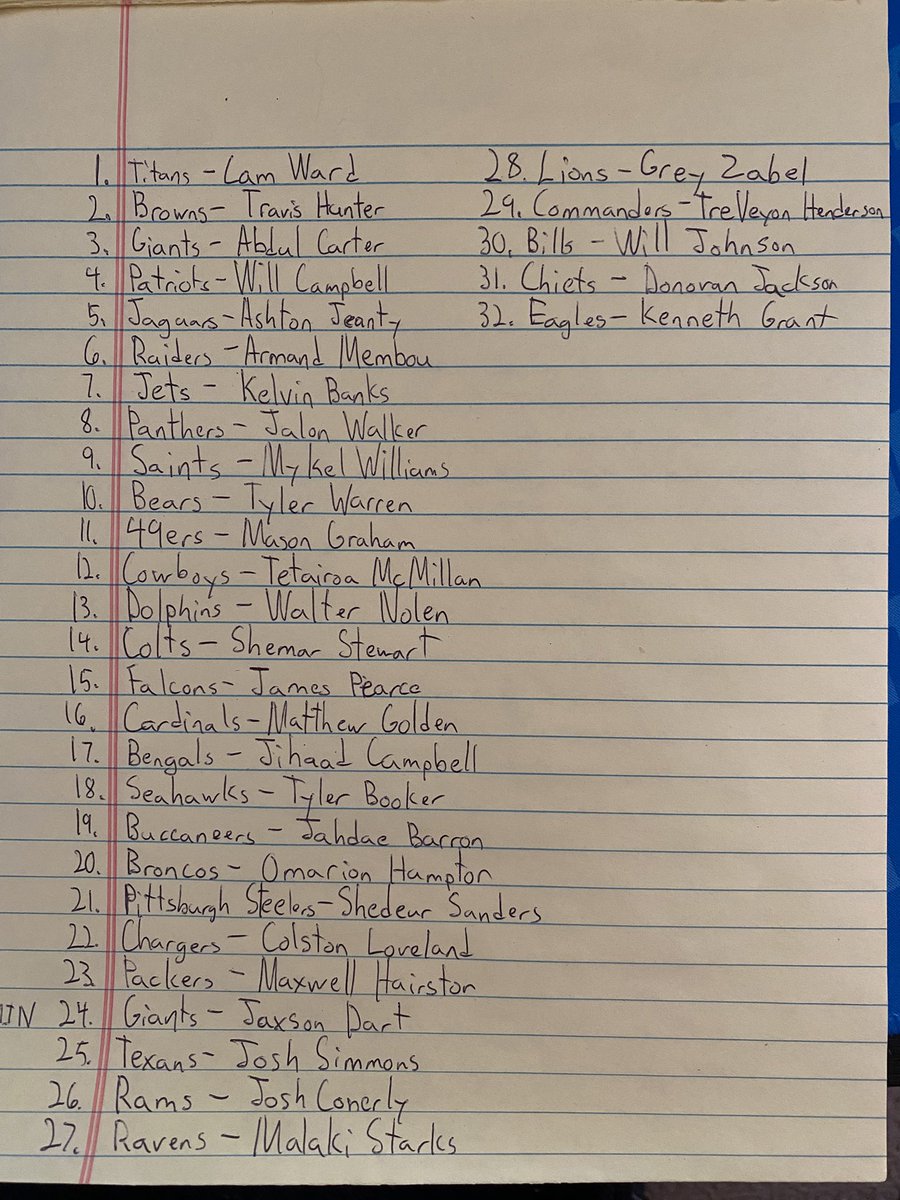 1. Titans - Cam Ward
2. Browns - Travis Hunter
3. Giants - Abdul Carter
4. Patriots - Will Campbell
5. Jaguars - Ashton Jeanty
6. Raiders - Armand Membou
7. Jets - Kelvin Banks
8. Panthers - Jalon Walker
9. Saints - Mykel Williams
10. Bears - Tyler Warren
11. 49ers - Mason Graham
12. Cowboys - Tetairoa McMillan
13. Dolphins - Walter Nolen
14. Colts - Shemar Stewart
15. Falcons - James Pearce
16. Cardinals - Matthew Golden
17. Bengals - Jihaad Campbell
18. Seahawks - Tyler Booker
19. Buccaneers - Jahdae Barron
20. Broncos - Omarion Hampton
21. Pittsburgh Steelers - Shedeur Sanders
22. Chargers - Colston Loveland
23. Packers - Maxwell Hairston
24. Giants - Jaxson Dart
25. Texans - Josh Simmons
26. Rams - Josh Conerly
27. Ravens - Malaki Starks
28. Lions - Grey Zabel
29. Commanders - TreVeyon Henderson
30. Bills - Will Johnson
31. Chiefs - Donovan Jackson
32. Eagles - Kenneth Grant